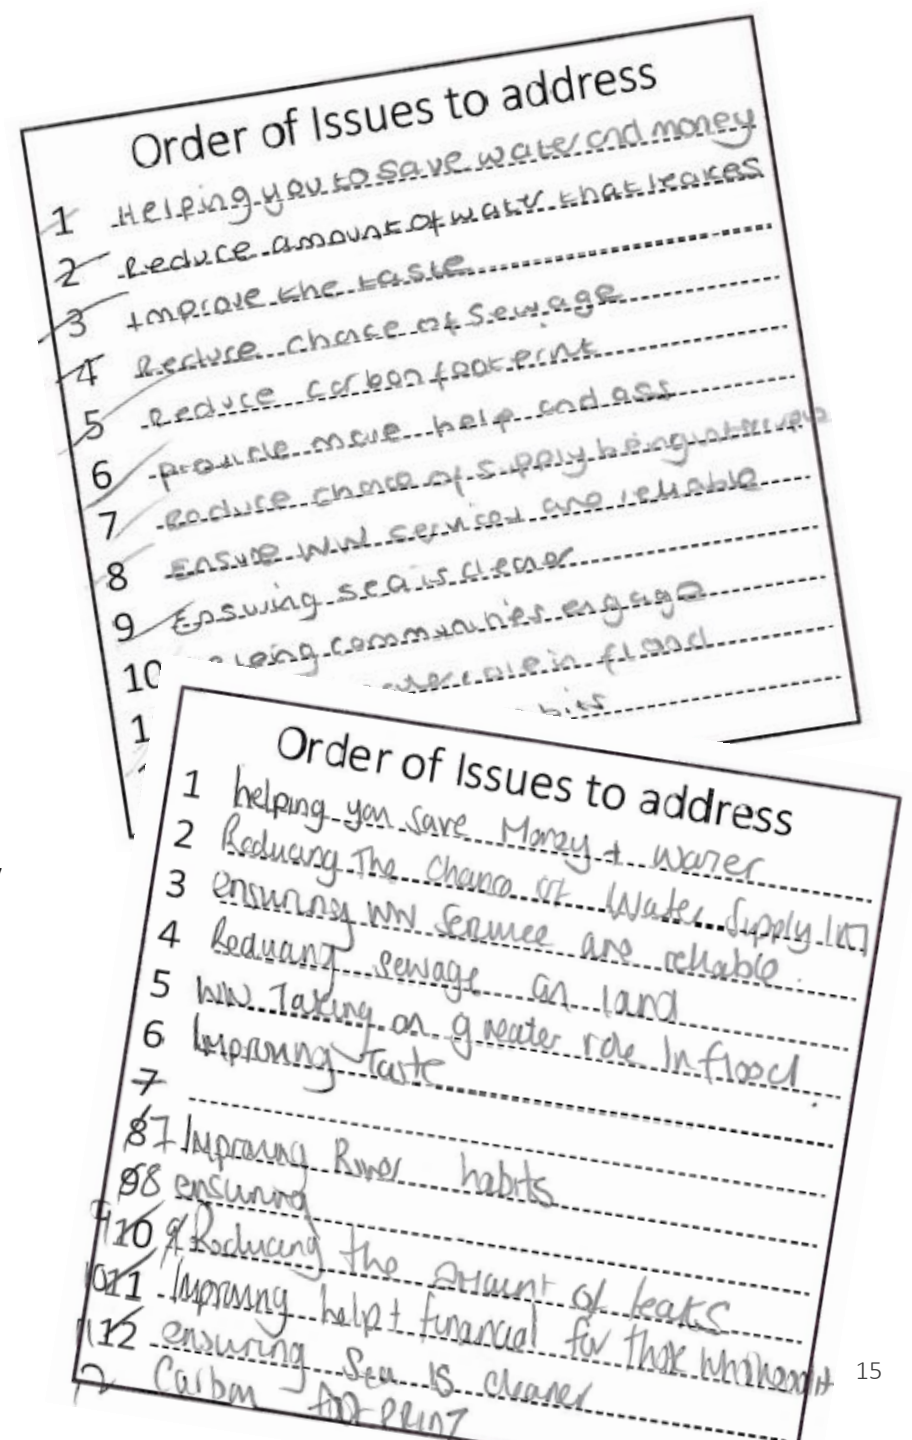 Order of Issues to address
1 Helping you to save water and money
2 Reduce amount of water that leakes
3 Improve the taste
4 Reduce chace of sewage
5 Reduce carbon footprint
6 provide more help and ass
7 Reduce chance of supply being
8 Ensure WW services are reliable
9 Ensuring sea is cleaner
10 communities engage
1 role in flood
Order of Issues to address
1 helping you save Money + water
2 Reducing The Chance of Water Supply Int
3 ensuring WW Service are reliable.
4 Reducing sewage on land
5 WW Taking on greater role In flood
6 Improving Taste
7
8 7 Improving River habits
9 8 ensuring
9 10 9 Reducing the amount of leaks
10 11 Improving help + financial for those who need it
11 12 ensuring Sea IS cleaner
12 Carbon FOOTPRINT
15